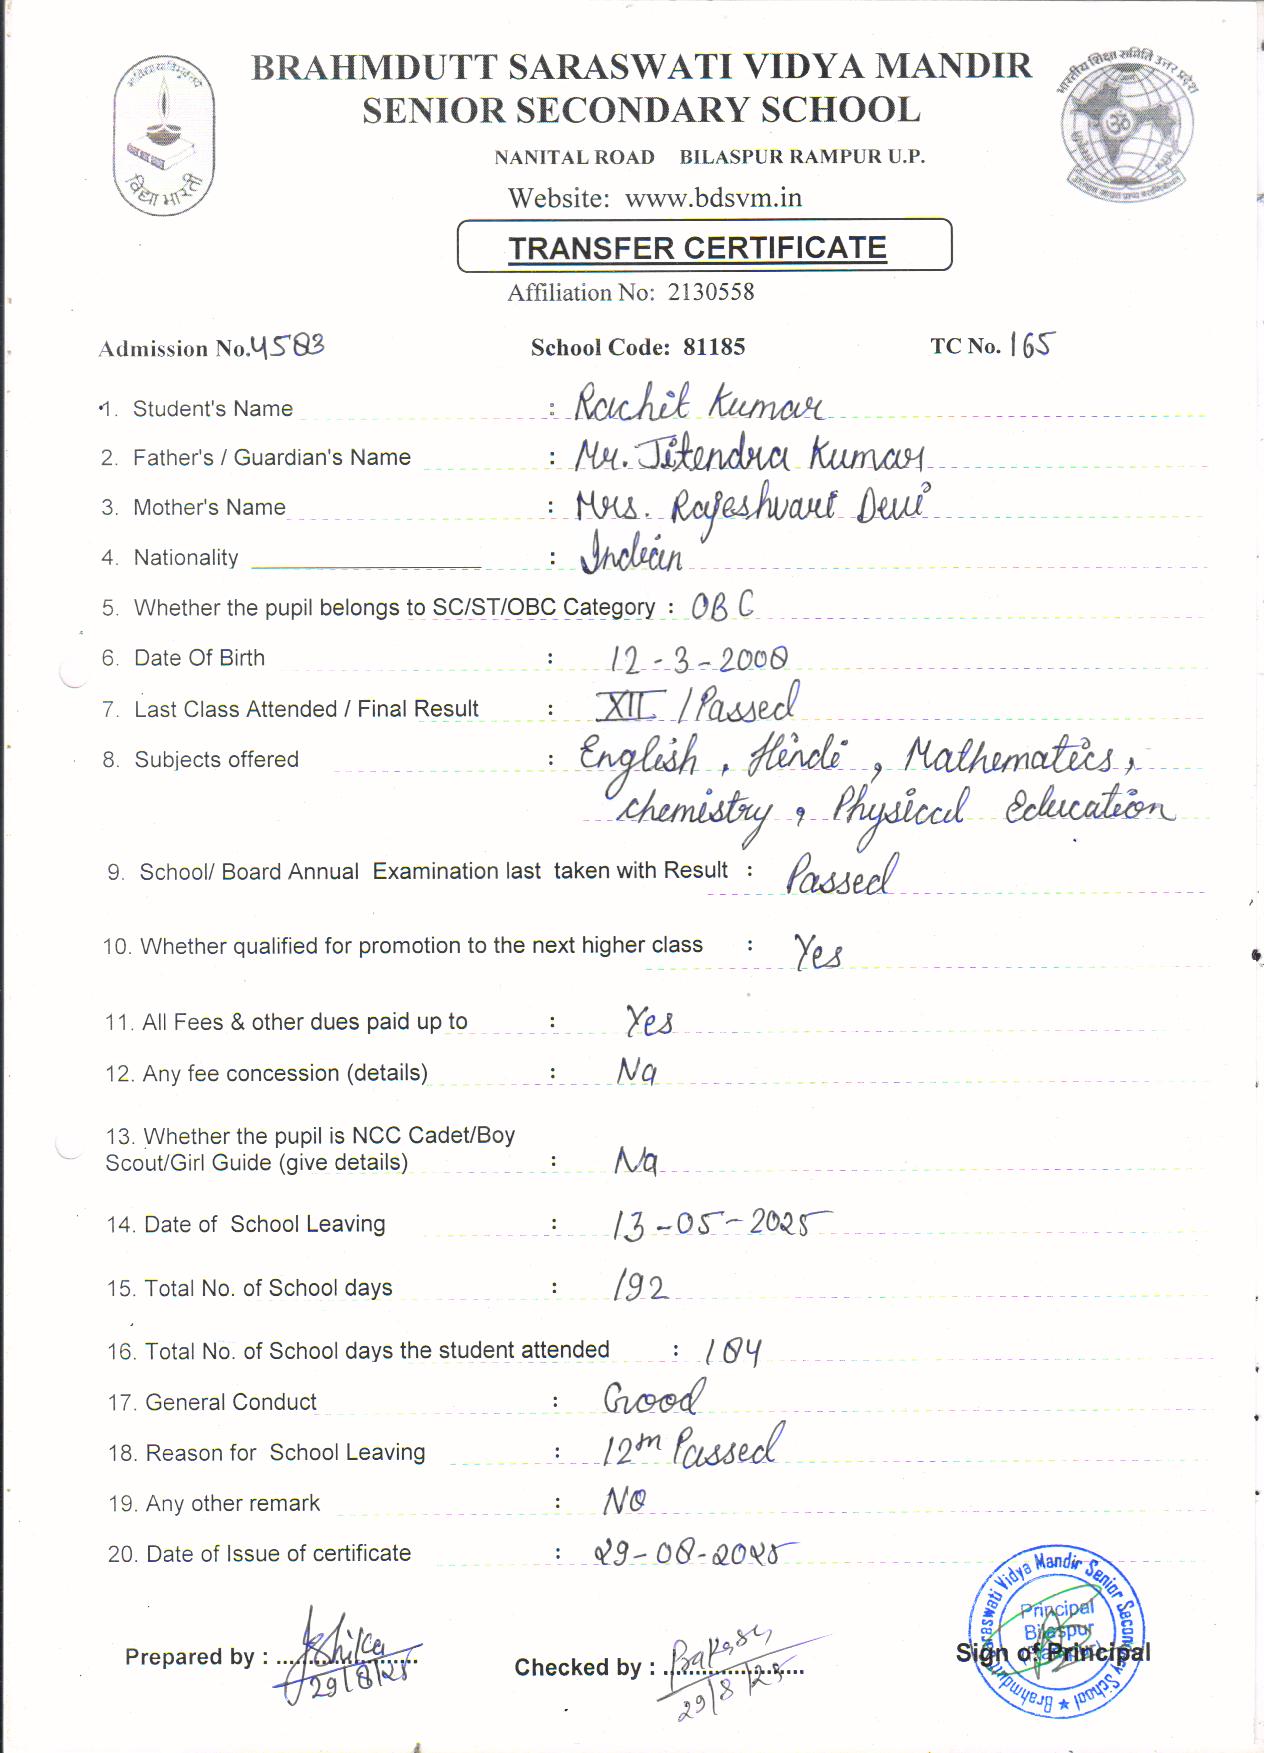 BRAHMDUTT SARASWATI VIDYA MANDIR
SENIOR SECONDARY SCHOOL
NANITAL ROAD BILASPUR RAMPUR U.P.
विद्या भारती
भारतीय शिक्षा समिति उत्तर प्रदेश
Website: www.bdsvm.in
TRANSFER CERTIFICATE
Affiliation No: 2130558
Admission No. 4583 School Code: 81185 TC No. 165
1. Student's Name : Rachit Kumar
2. Father's / Guardian's Name : Mr. Jitendra Kumar
3. Mother's Name : Mrs. Rajeshwari Devi
4. Nationality : Indian
5. Whether the pupil belongs to SC/ST/OBC Category : OBC
6. Date Of Birth : 12-3-2008
7. Last Class Attended / Final Result : XII / Passed
8. Subjects offered : English, Hindi, Mathematics,
chemistry, Physical Education
9. School/ Board Annual Examination last taken with Result : Passed
10. Whether qualified for promotion to the next higher class : Yes
11. All Fees & other dues paid up to : Yes
12. Any fee concession (details) : No
13. Whether the pupil is NCC Cadet/Boy
Scout/Girl Guide (give details) : No
14. Date of School Leaving : 13-05-2025
15. Total No. of School days : 192
16. Total No. of School days the student attended : 184
17. General Conduct : Good
18. Reason for School Leaving : 12th Passed
19. Any other remark : NO
20. Date of Issue of certificate : 29-08-2025
Principal
Bilaspur
Prepared by : 29/8/25
Checked by : 29/8/25
Sign of Principal